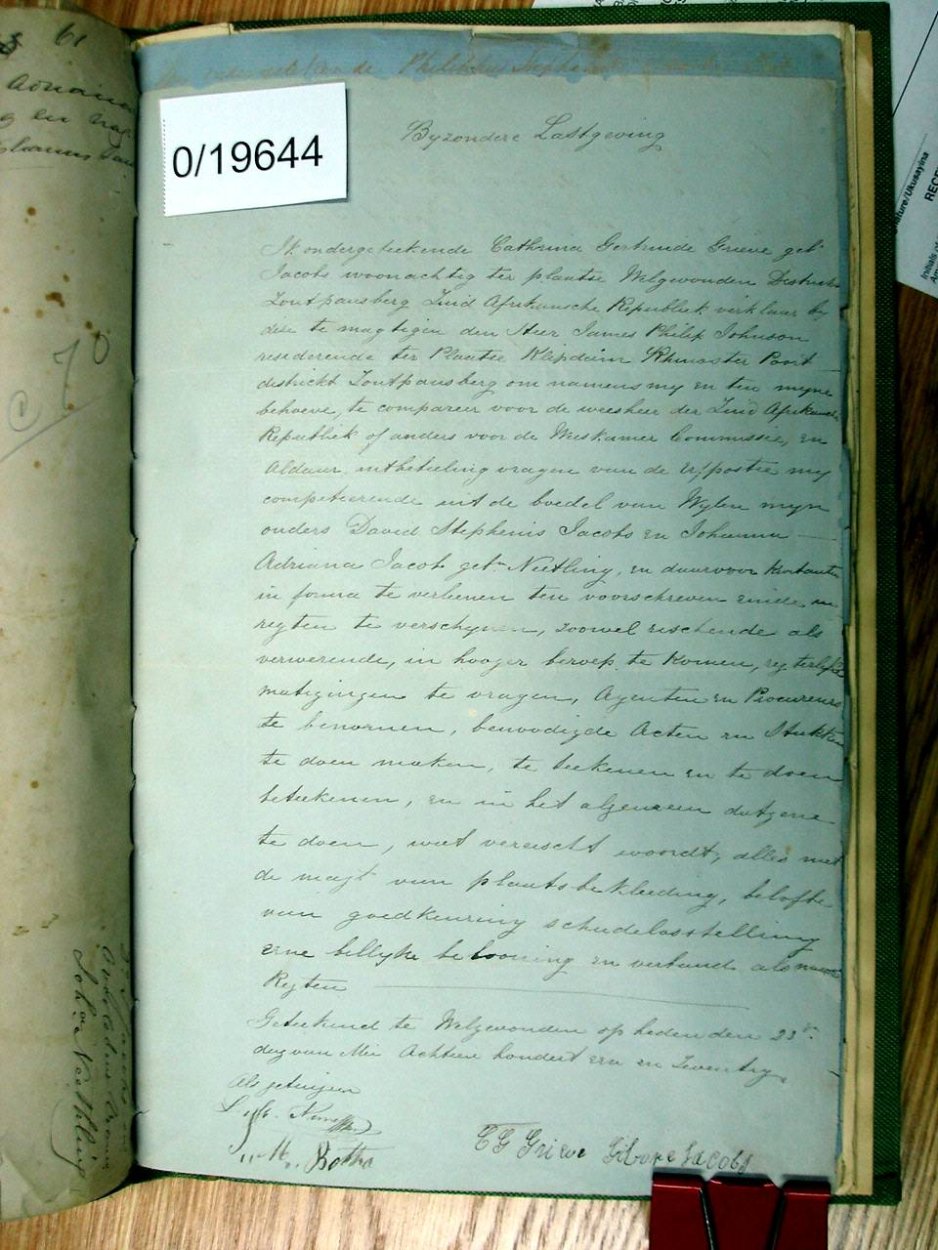 61
Adriana
en
0/19644
Philippus Stephanus
Byzondere Lastgeving
Ik ondergeteekende Cathrina Gertruide Grieve geb
Jacobs woonachtig ter plaatse Welgevonden District
Zoutpansberg Zuid Afrikansche Republiek verklaar by
deze te magtigen den Heer James Philip Johnson
resideerende ter Plaatse Klipdam Rhenoster Poort
district Zoutpansberg om namens my en ten myne
behoeve, te compareer voor de weesheer der Zuid Afrikansche
Republiek of anders voor de Weeskamer Commissie, en
aldaar uitbetaling vragen van de erfpostie my
competeerende uit de boedel van Wylen myn
ouders David Stephenis Jacobs en Johanna
Adriana Jacobs geb Neetling, en daarvoor kwitantie
in forma te verleenen ten voorschreven einde in
regten te verschynen, zoowel eischende als
verwerende, in hooger beroep te komen, regterlyke
matigingen te vragen, Agenten en Procureurs
te benoemen, benoodigde Acten en Stukken
te doen maken, te teekenen en te doen
beteekenen, en in het algemeen datgene
te doen, wat vereischt woordt, alles met
de magt van plaatsbekleeding, belofte
van goedkeuring schadelosstelling
eene billyke belooning en verband als naar
Regten
Geteekend te Welgevonden op heden den 23
dag van Mei Achtien hondert een en Zeventig
Als getuigen
Botha
C G Grieve Gebore Jacobs
Joh Neethling